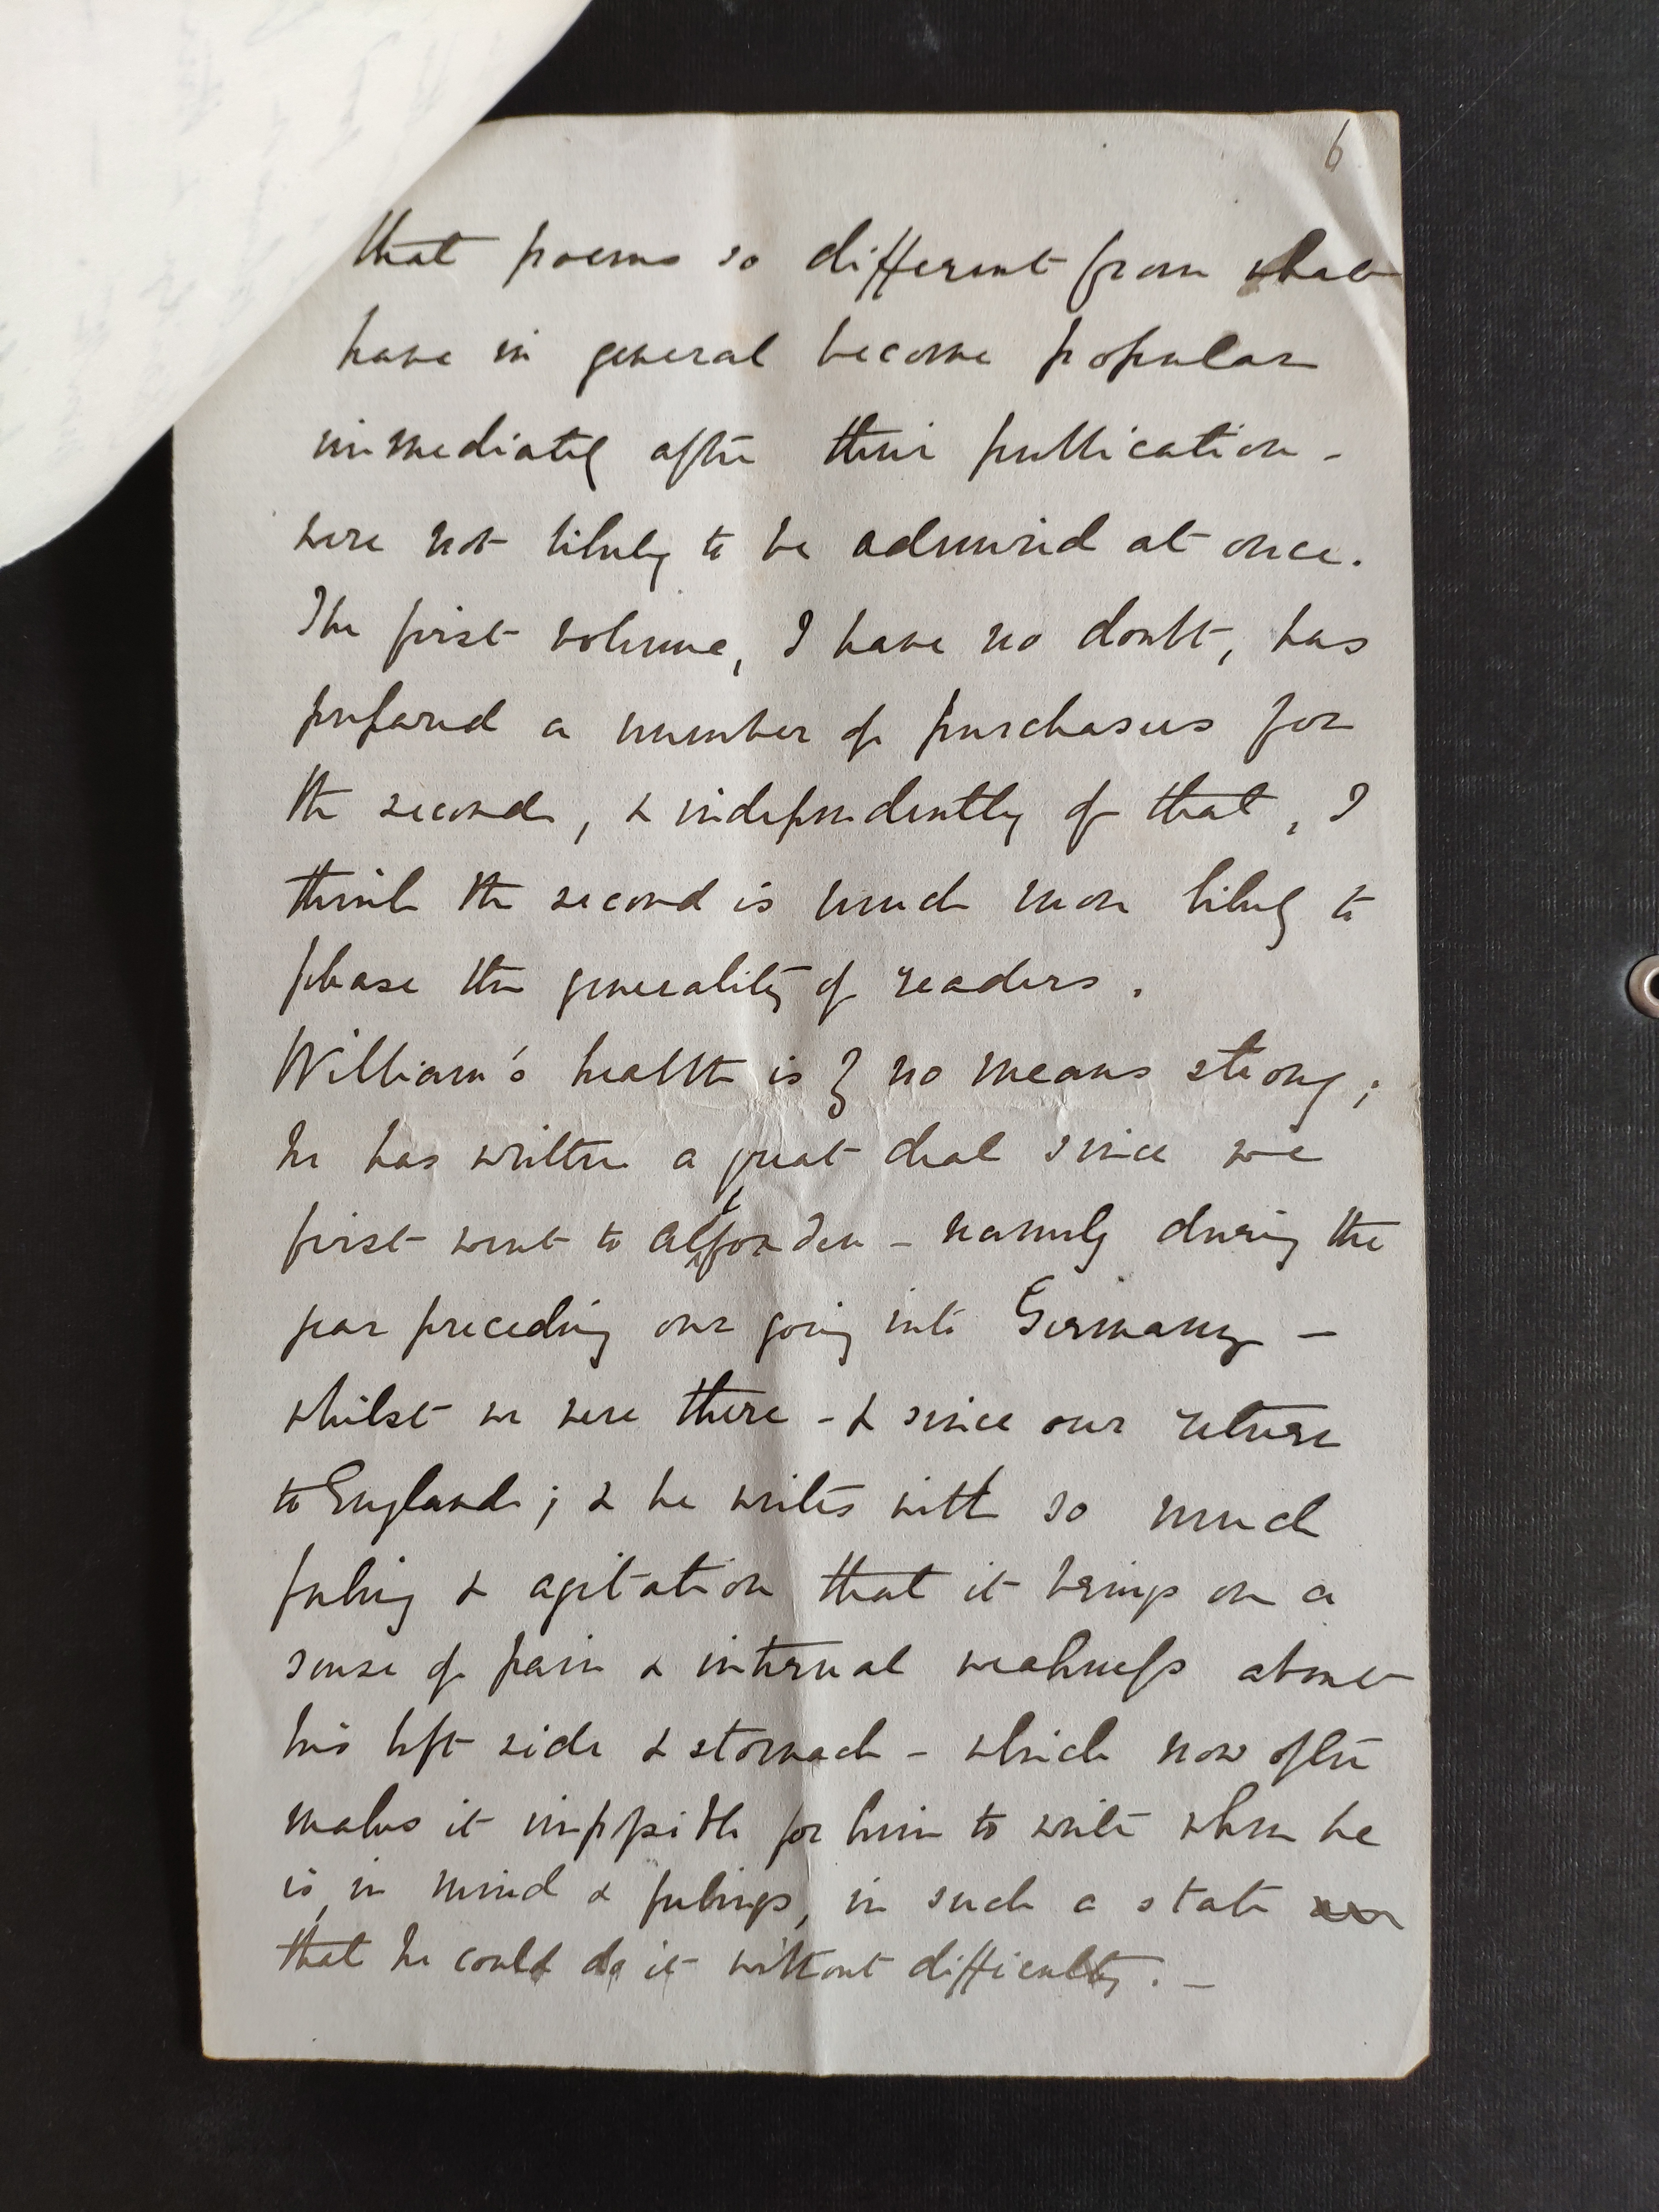 6
that poems so different from what
have in general become popular
immediately after their publication -
were not likely to be admired at once.
The first volume, I have no doubt, has
prepared a number of purchasers for
the second, & independently of that, I
think the second is much more likely to
please the generality of readers.
William's health is by no means strong;
he has written a great deal since we
first went to Alfoxden - namely during the
year preceding our going into Germany -
whilst we were there - & since our return
to England; & he writes with so much
feeling & agitation that it brings on a
sense of pain & internal weakness about
his left side & stomach - which now often
makes it impossible for him to write when he
is, in mind & feelings, in such a state
that he could do it without difficulty. -